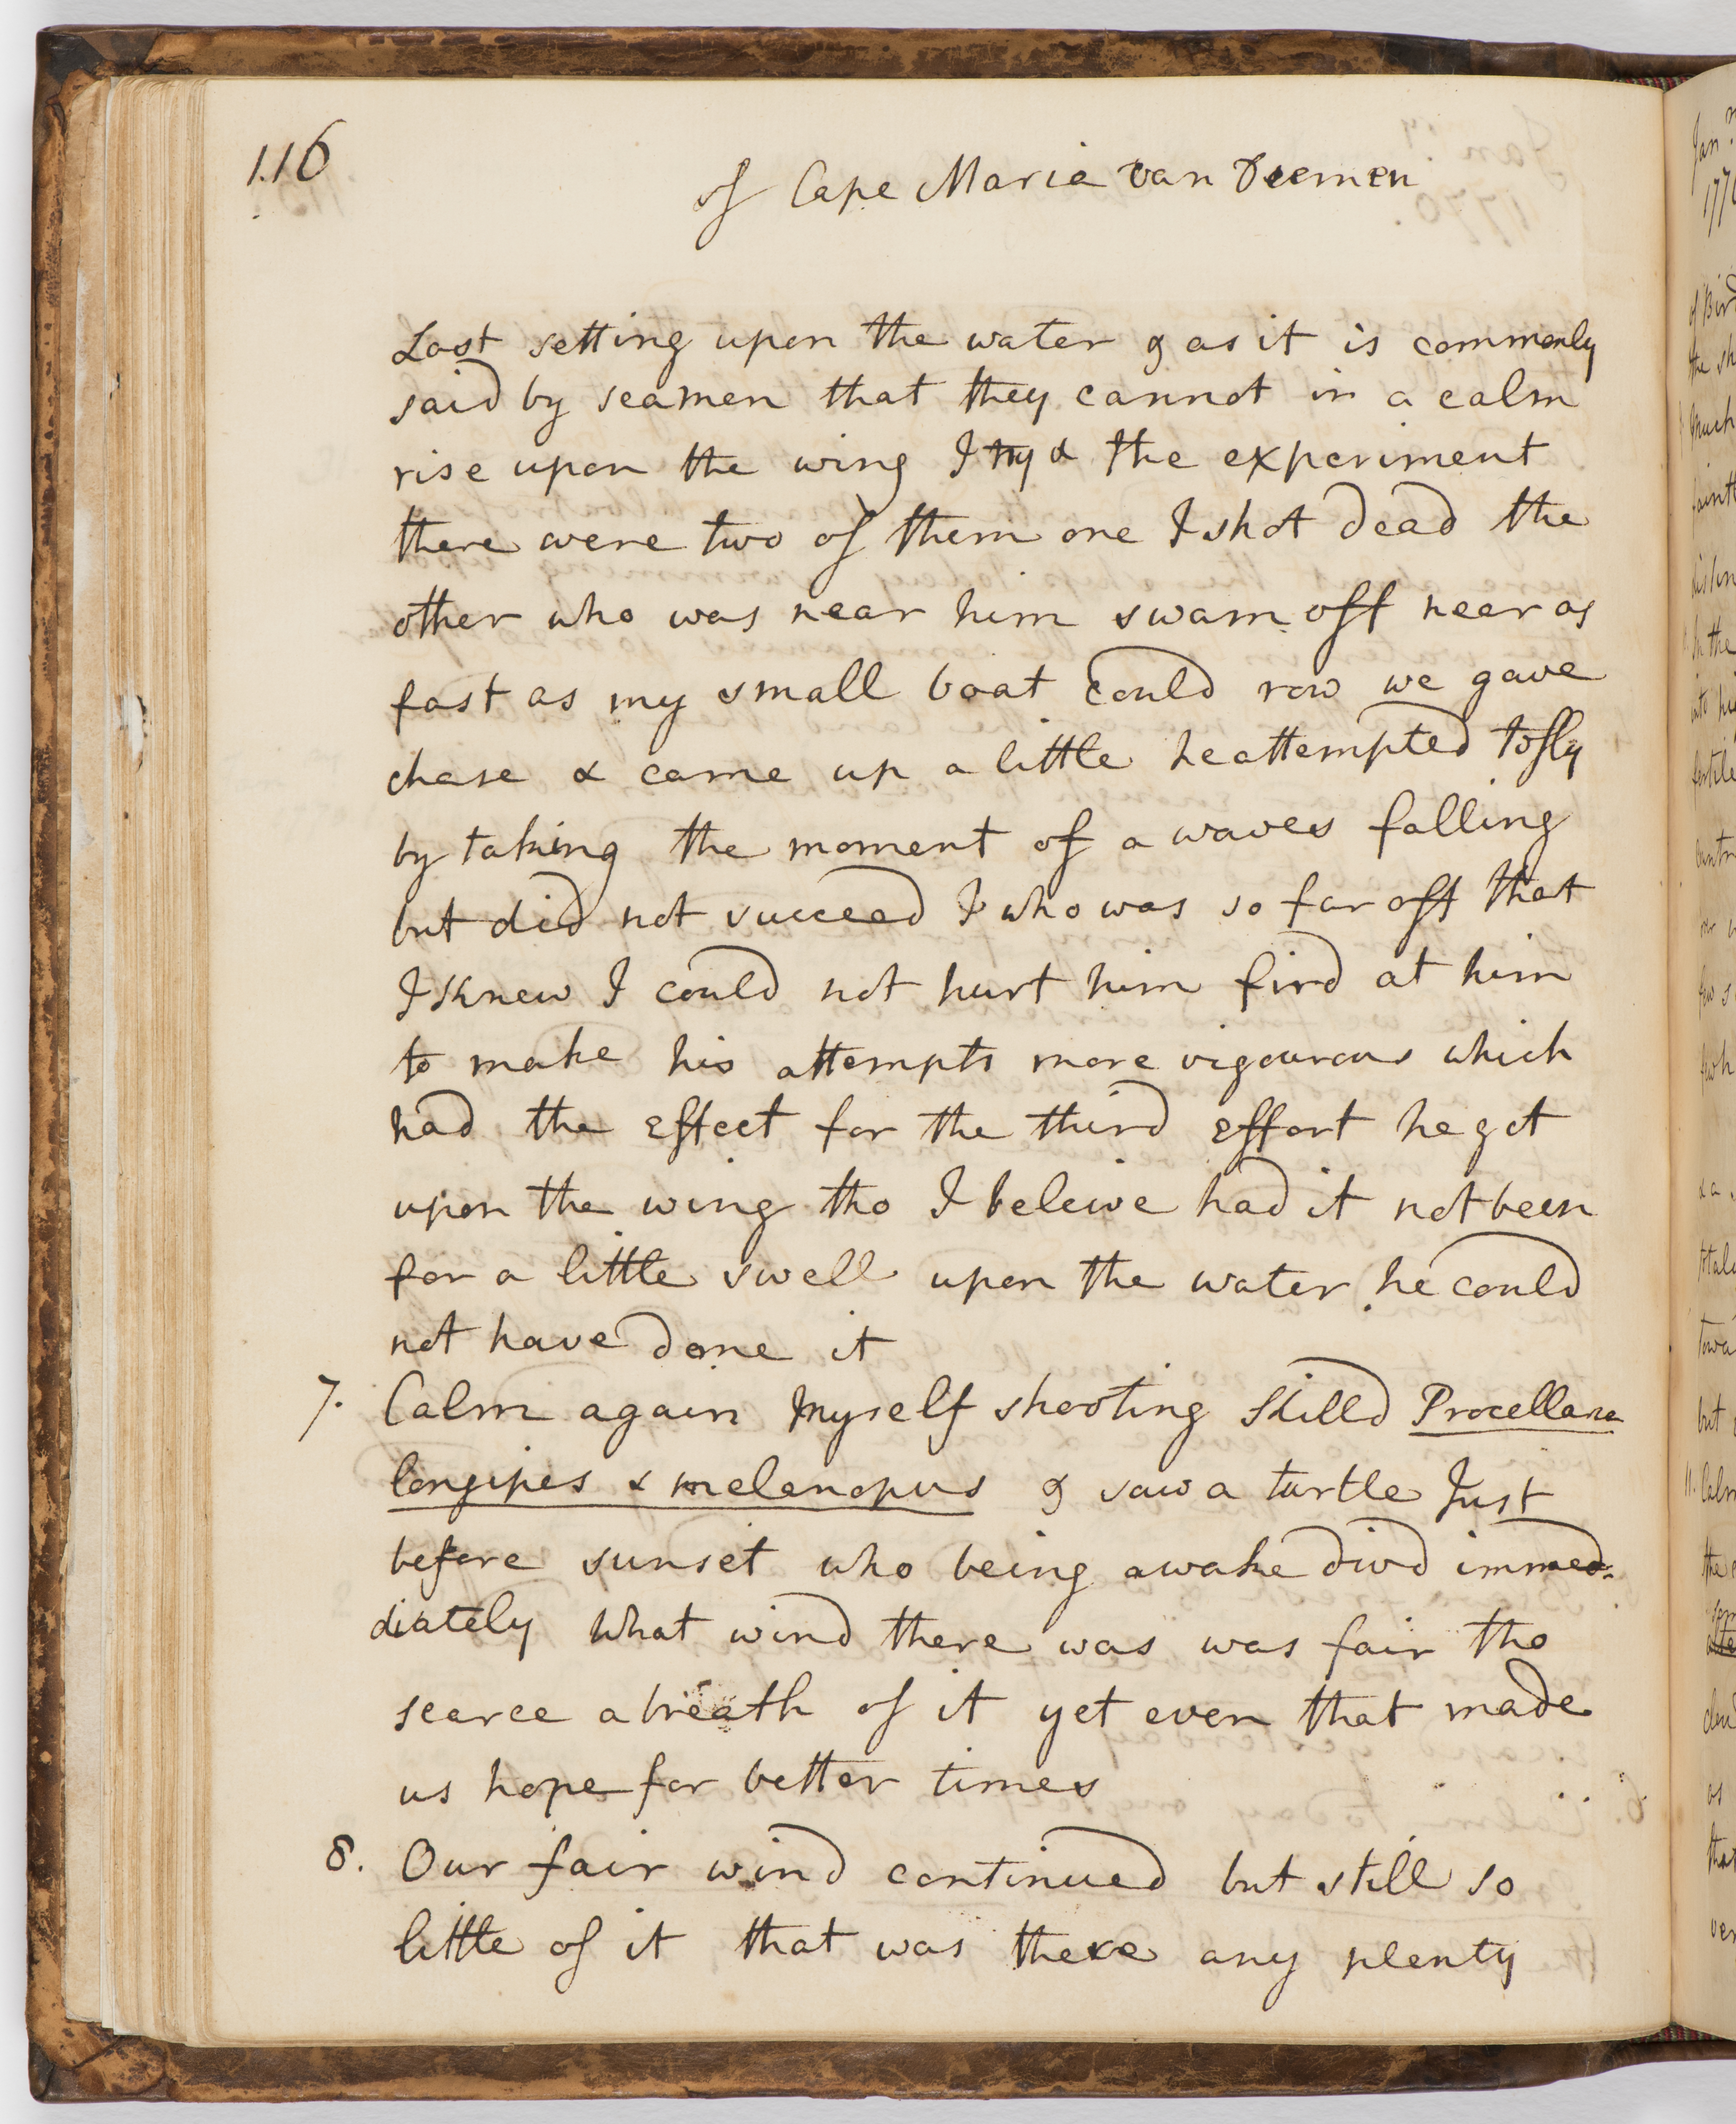 116
of Cape Maria van Diemen
Last setting upon the water & as it is commonly
said by seamen that they cannot in a calm
rise upon the wing I tryd the experiment
there were two of them one I shot dead the
other who was near him swam off near as
fast as my small boat could row we gave
chase & came up a little he attempted to fly
by taking the moment of a waves falling
but did not succeed I who was so far off that
I knew I could not hurt him fird at him
to make his attempts more vigourous which
had the effect for the third effort he got
upon the wing tho I beleive had it not been
for a little swell upon the water he could
not have done it
7. Calm again Myself shooting killd Procellaria
longipes & melanopus & saw a turtle Just
before sunset who being awake divd immed-
diately What wind there was was fair tho
scarce a breath of it yet even that made
us hope for better times
8. Our fair wind continued but still so
little of it that was there any plenty